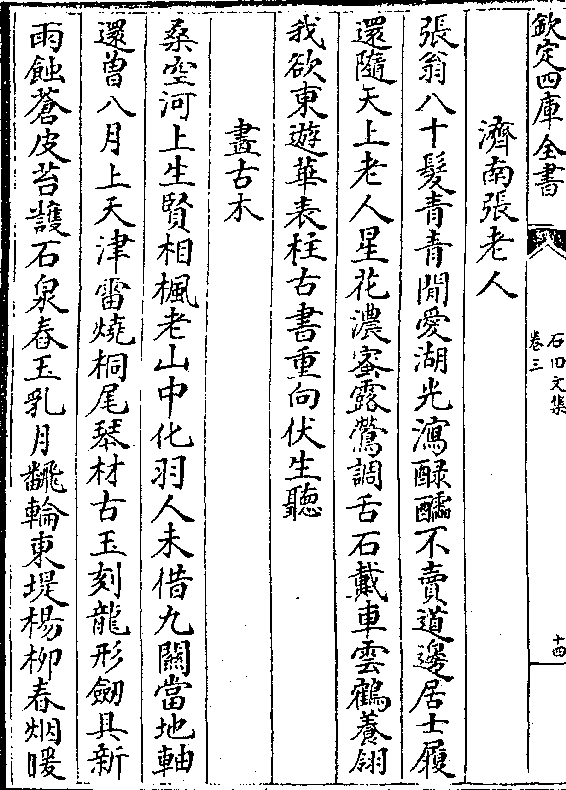 欽定四庫全書
石田文集
卷三
十四
濟南張老人
張翁八十髮青青閒愛湖光瀉醁醽不賣道邊居士履
還隨天上老人星花濃蜜露鶯調舌石戴車雲鶴養翎
我欲東遊華表柱古書重向伏生聽
畫古木
桑空河上生賢相楓老山中化羽人未借九關當地軸
還曾八月上天津雷燒桐尾琴材古玉刻龍形劒具新
雨蝕蒼皮苔護石泉舂玉乳月飜輪東堤楊柳春烟暖